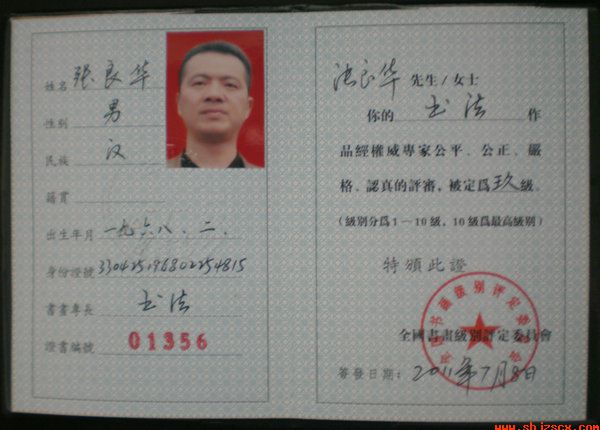 姓名 张良华
性别 男
民族 汉
籍貫
出生年月 一九六八.二.
身份證號 330425196802254815
書畫專長 书法
證書編號 01356
张良华 先生/女士
你的 书法 作
品經權威專家公平、公正、嚴
格、認真的評審，被定爲玖級。
(級別分爲1—10級，10級爲最高級別)
特頒此證
全國書畫級別評定委員會
簽發日期: 2011年7月8日
www.sbjzscx.com